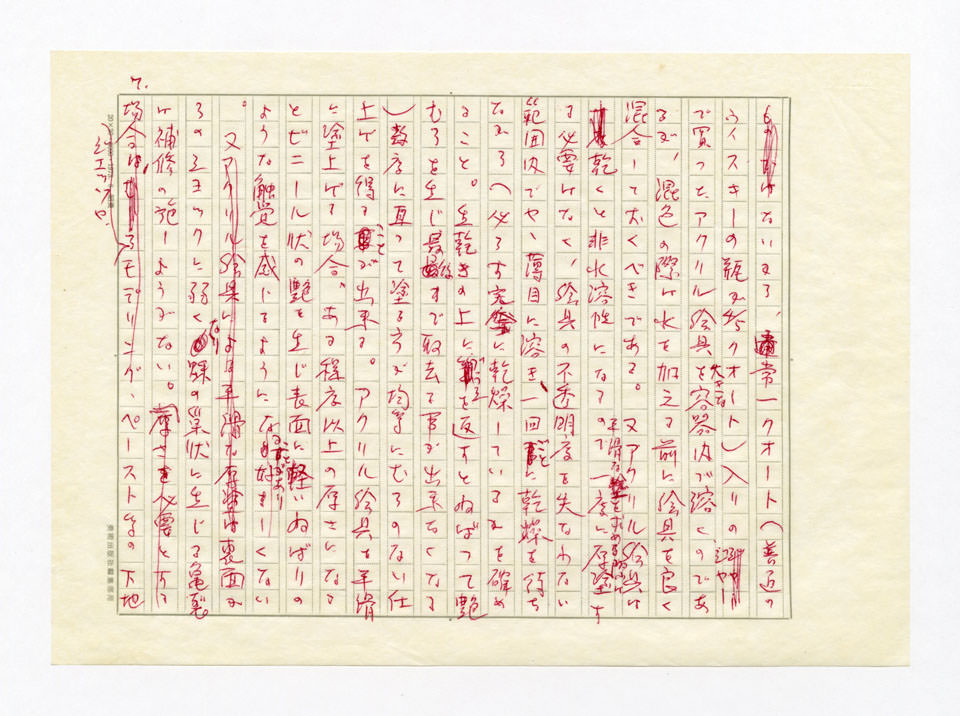 7.
ないから、通常一クオート(普通の
ウイスキーの瓶が4/5クオート)入りの
で買ったアクリル絵具を大きな容器内で溶くのであ
るが、混色の際は水を加える前に絵具を良く
混合しておくべきである。又アクリル絵具は
乾くと非水溶性になるので平滑な を求める際は一度に厚塗す
る必要はなく、絵具の不透明度を失なわない
範囲内でやゝ薄目に溶き、一回ごとに乾燥を待ち
ながら(必らず完全に乾燥しているかを確め
ること。生乾きの上に を返すとねばって艶
むらを生じ最後まで取去る事が出来なくなる
)数度に亘って塗る方が均等にむらのない仕
上げを得ることが出来る。アクリル絵具を平滑
に塗上げる場合、ある程度以上の厚さになる
とビニール状の艶を生じ表面に軽いねばりの
ような触覚を感じるようになることがあり好ましくない
。又アクリル絵具による平滑な厚塗は表面か
らのショックに弱く 蹼の巣状に生じる亀裂
は補修の施しようがない。厚さを必要とする
場合は、モデリング・ペースト等の下地